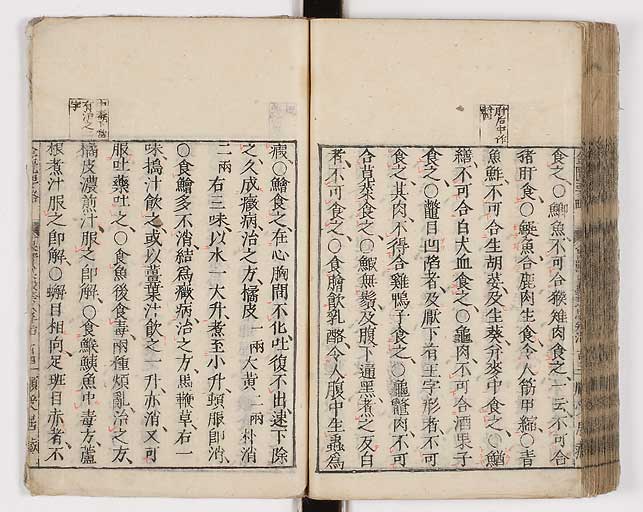 食之○鯽魚不可合猴雉肉食之一云不可合
猪肝食○鯷魚合鹿肉生食令人筋甲縮○青
魚鮓不可合生胡荽及生葵并麥中食之○鰌
鱔不可合白犬血食之○龜肉不可合酒果子
食之○鼈目凹陷者及厭下有王字形者不可
食之其肉不得合雞鴨子食之○龜鼈肉不可
合莧菜食之○鰕無鬚及腹下通黑煮之反白
者不可食之○食膾飲乳酪令人腹中生蟲為
瘕○鱠食之在心胸間不化吐復不出速下除
之久成癥病治之方橘皮一兩大黃二兩朴消
二兩右三味以水一大升煮至小升頓服即消
○食鱠多不消結為癥病治之方馬鞭草右一
味搗汁飲之或以薑葉汁飲之一升亦消又可
服吐藥吐之○食魚後食毒兩種煩亂治之方
橘皮濃煎汁服之即解○食鯸鮧魚中毒方蘆
根煮汁服之即解○蟹目相向足班目赤者不